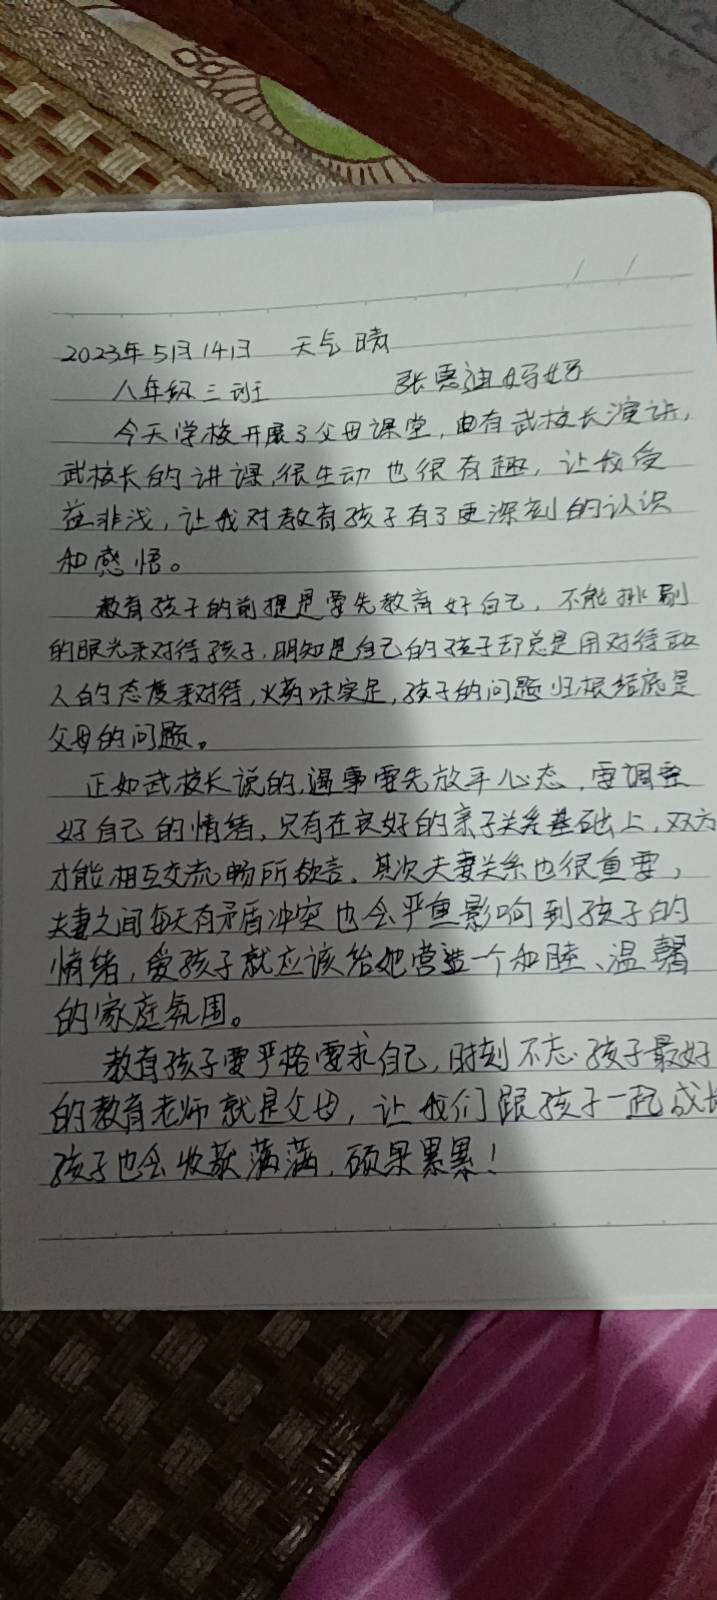 2023年5月14日 天气晴
八年级三班 张惠迪妈妈
今天学校开展了父母课堂,由有武校长演讲,
武校长的讲课,很生动也很有趣,让我受
益非浅,让我对教育孩子有了更深刻的认识
和感悟。
教育孩子的前提是要先教育好自己,不能挑剔
的眼光来对待孩子,明知是自己的孩子却总是用对待敌
人的态度来对待,火药味实足,孩子的问题归根结底是
父母的问题。
正如武校长说的,遇事要先放平心态,要调整
好自己的情绪,只有在良好的亲子关系基础上,双方
才能相互交流畅所欲言。其次夫妻关系也很重要,
夫妻之间每天有矛盾冲突也会严重影响到孩子的
情绪,爱孩子就应该给她营造一个和睦、温馨
的家庭氛围。
教育孩子要严格要求自己,时刻不忘孩子最好
的教育老师就是父母,让我们跟孩子一起成长
孩子也会收获满满,硕果累累!